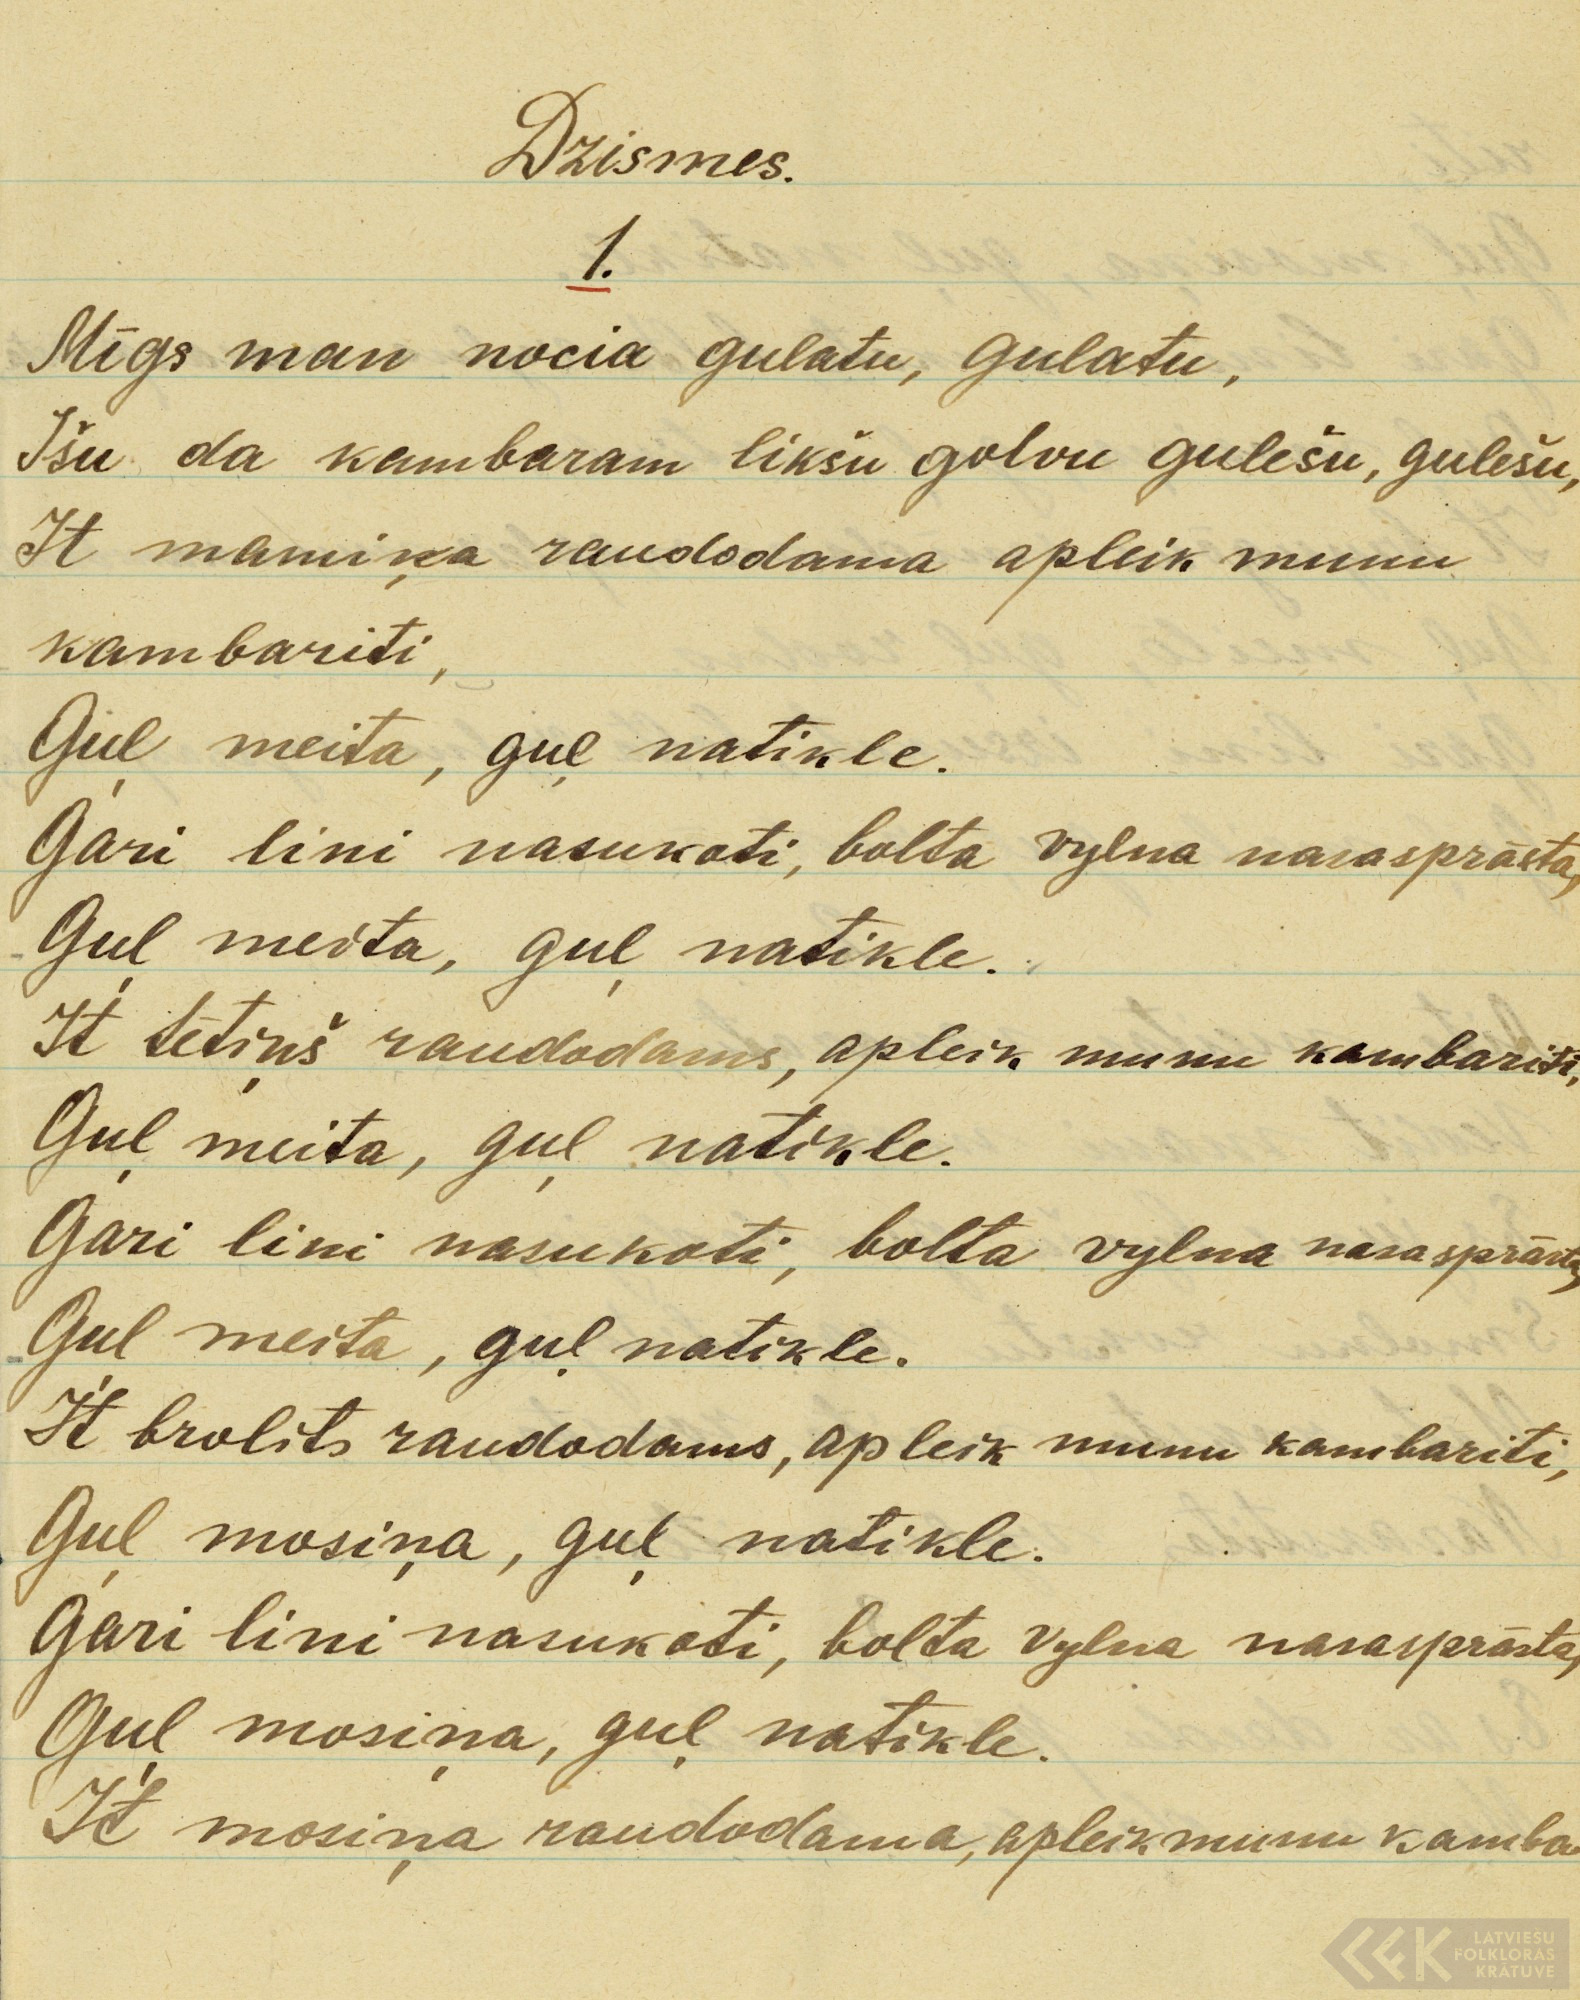 Dzismes.
1.
Mīgs man nocia gulatu, gulatu,
Īšu da kambaram likšu golvu gulešu, gulešu,
It mamiņa raudodama apleik munu
kambariti,
Guļ meita, guļ natikle.
Gari lini nasukoti, bolta vylna nasasprāsta,
Guļ meita, guļ natikle.
It tētiņš raudodams, apleik munu kambariti,
Guļ meita, guļ natikle.
Gari lini nasukoti, bolta vylna nasasprāsta,
Gul meita, guļ natikle.
It brolits raudodams, apleik munu kambariti,
Guļ mosiņa, guļ natikle.
Gari lini nasukoti, bolta vylna nasasprāsta,
Guļ mosiņa, guļ natikle.
It mosiņa raudodama, apleik munu kamba-
LATVIEŠU
FOLKLORAS
KRĀTUVE